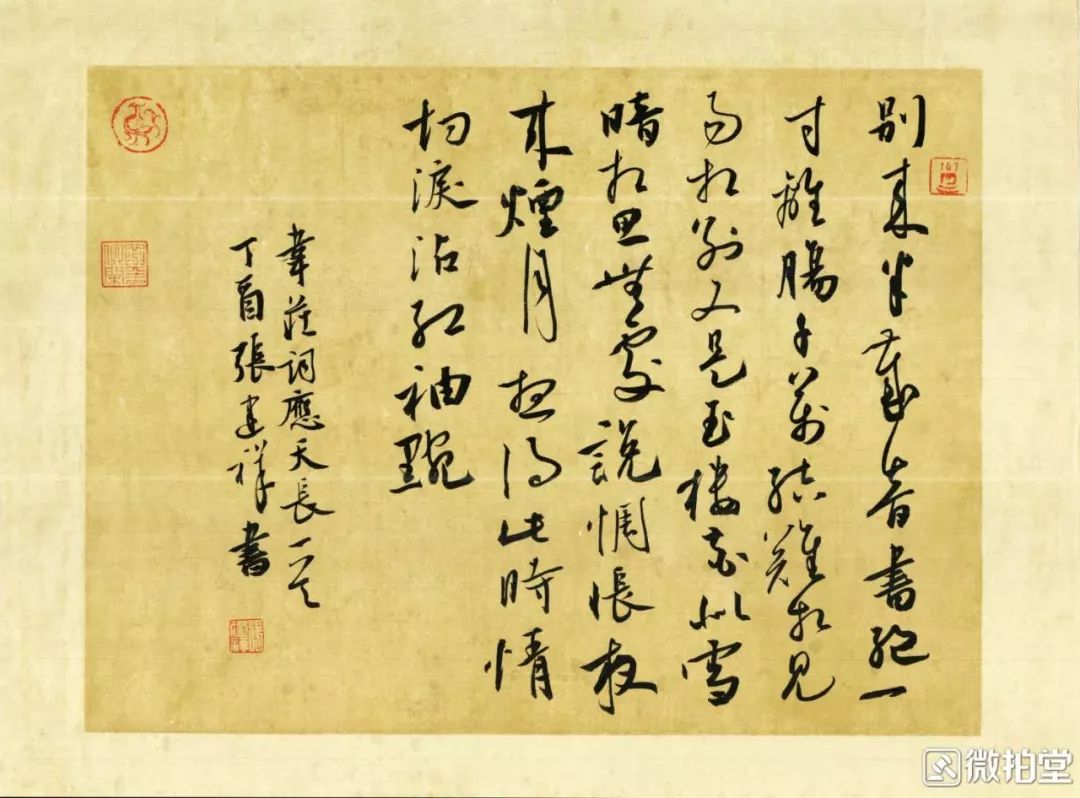 別來半歲音書絕一
寸離腸千萬結難相見
易相別又是玉樓花似雪
暗相思無處說惆悵夜
來煙月想得此時情
切淚沾紅袖黦
韋莊詞應天長一首
丁酉張建祥書
微拍堂